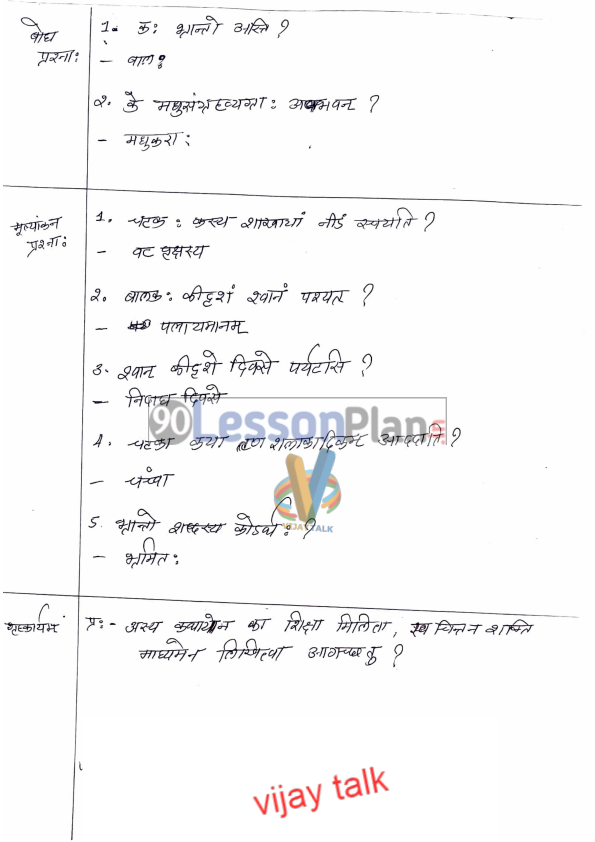 बोध प्रश्ना:
1. क: भ्रान्तो अस्ति ?
- बाल:
२. के मधुसंग्रहव्यग्रा: अभवन् ?
- मधुकरा:
मूल्यांकन प्रश्ना:
1. चटक: कस्य शाखायां नीडं रचयति ?
- वट वृक्षस्य
२. बालक: कीदृशं श्वानं पश्यत ?
- पलायमानम्
3. श्वान कीदृशे दिवसे पर्यटसि ?
- निदाघ दिवसे
90 LessonPlan
4. चटका कया तृण शलाकादिकम आददाति ?
- चंच्वा
VIJAY TALK
5. भ्रान्तो शब्दस्य कोडर्थ: ?
- भ्रमित:
गृहकार्यम
प्र:- अस्य का शिक्षा मिलिता, स्व चिन्तन शक्ति
माध्यमेन लिखित्वा आगच्छतु ?
vijay talk